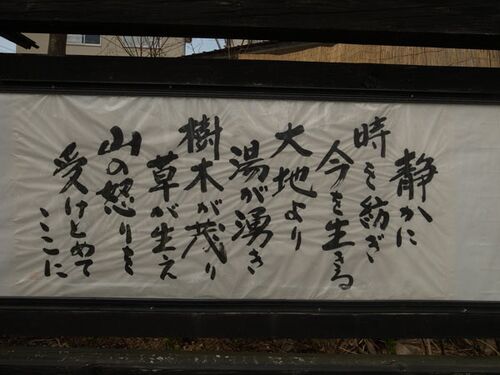 静かに
時を紡ぎ
今を生きる
大地より
湯が湧き
樹木が茂り
草が生え
山の怒りを
受けとめて
、ここに